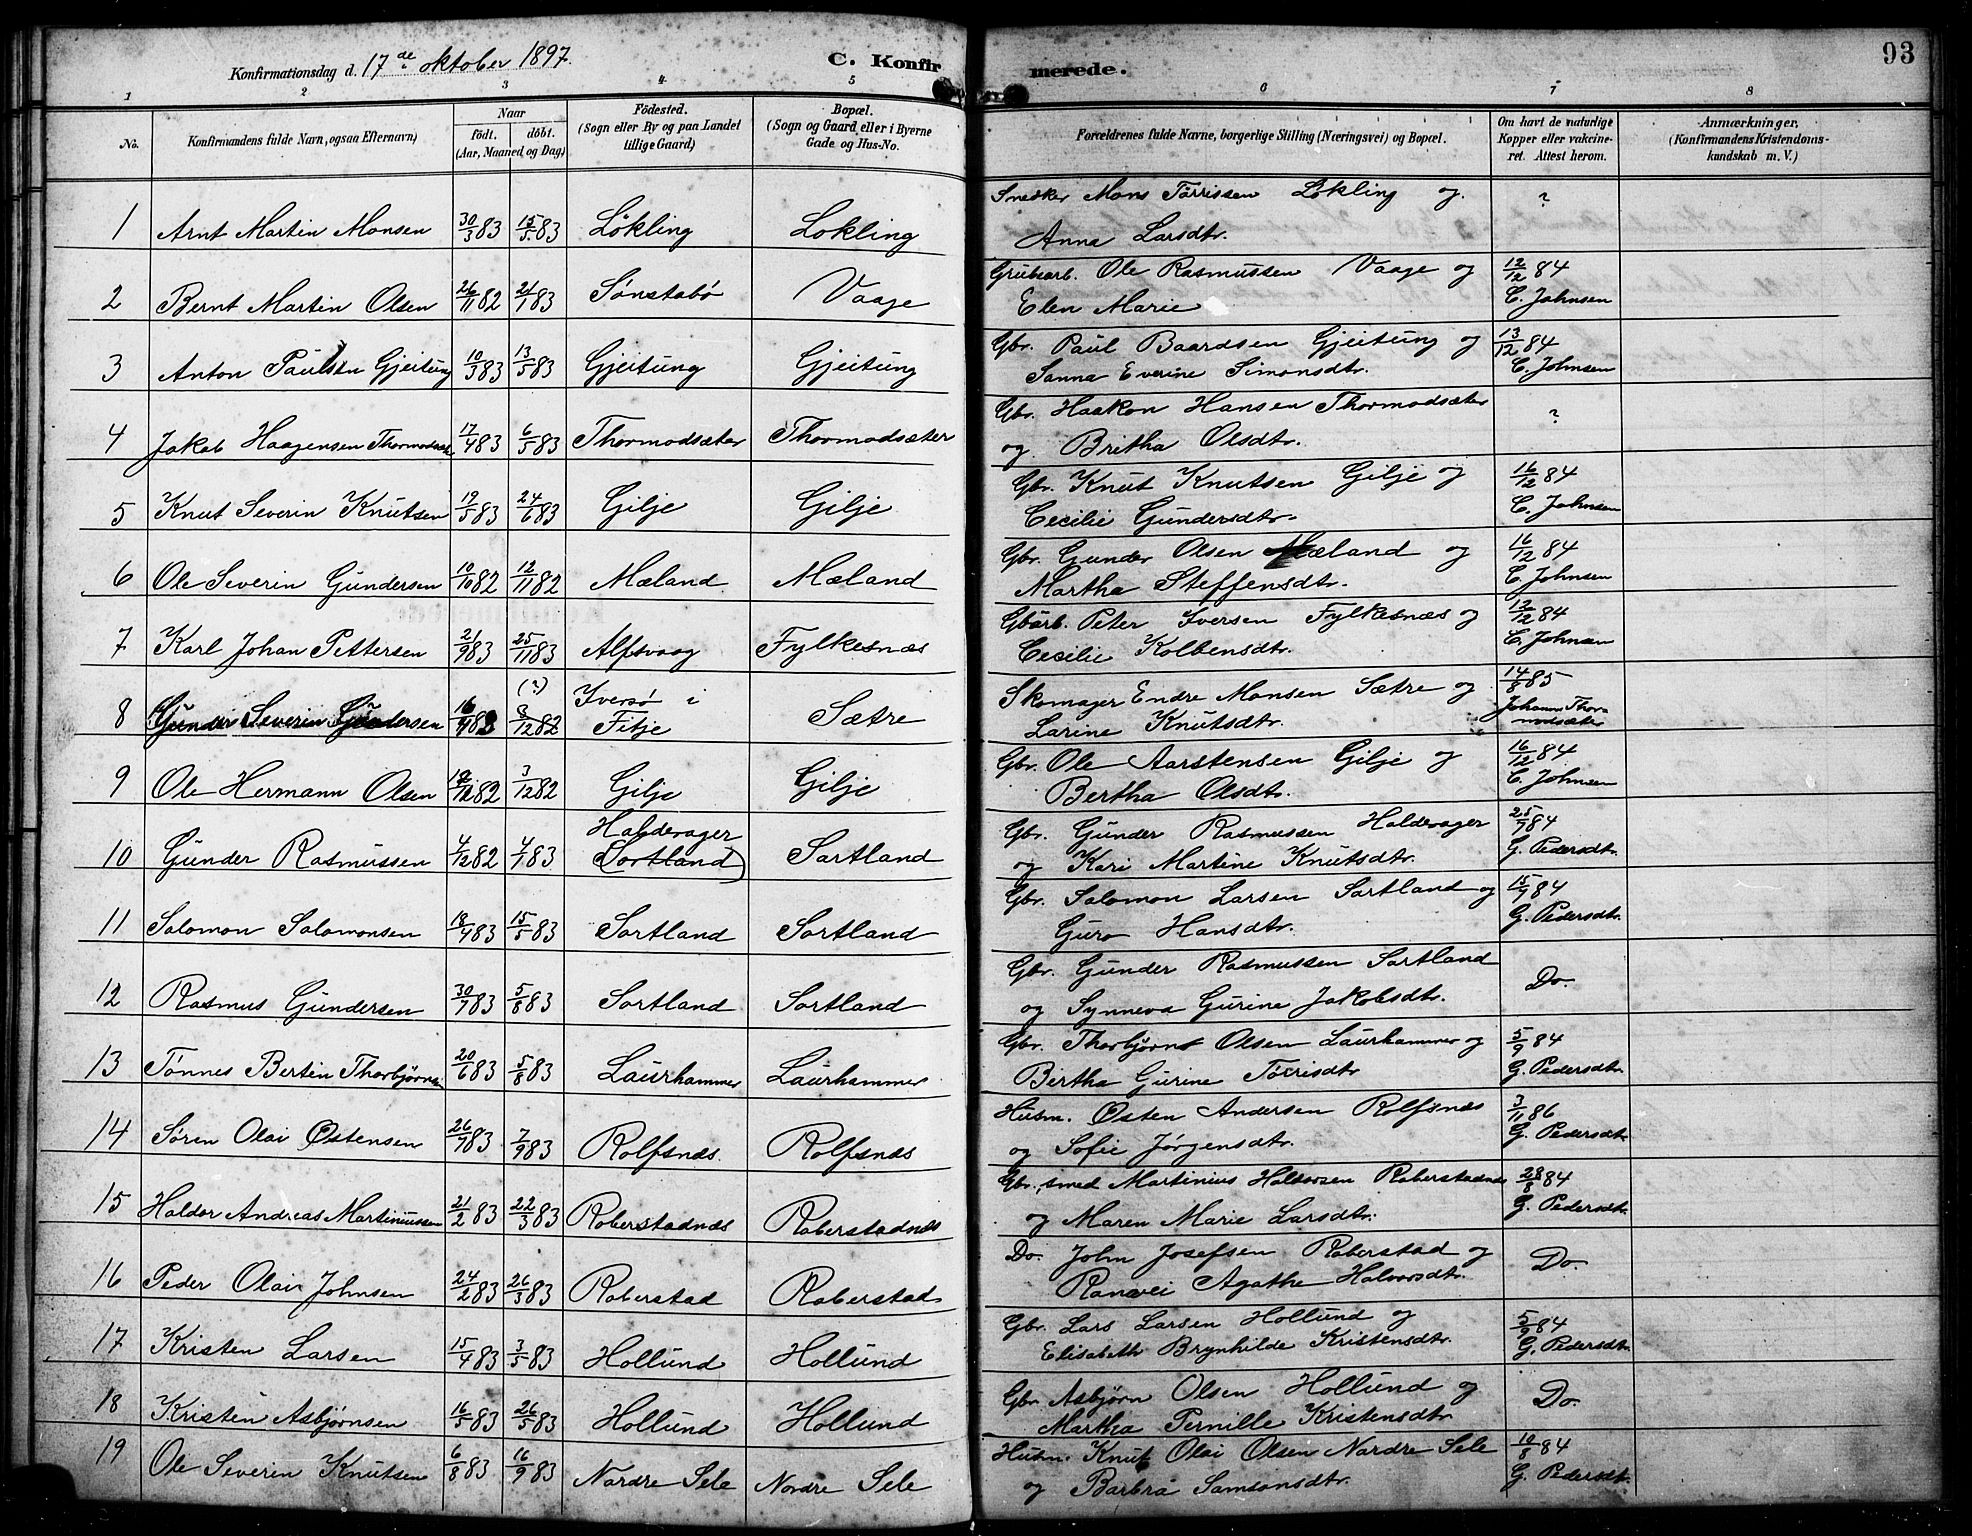 93
Konfirmationsdag d. 17de oktober 1897.
C. Konfirmerede.
1 2 3 4 5 6 7 8
No.
Konfirmandens fulde Navn, ogsaa Efternavn)
Naar
födt. döbt.
(Aar, Maaned og Dag)
Födested.
(Sogn eller By og paa Landet
tillige Gaard)
Bopæl.
(Sogn og Gaard eller i Byerne
Gade og Hus-No.
Forældrenes fulde Navne, borgerlige Stilling (Næringsvei) og Bopæl.
Om havt de naturlige
Kopper eller vakcine-
ret. Attest herom.
Anmærkninger.
(Konfirmandens Kristendoms-
kundskab m. V.)
Snedker Mons Tørrissen Løkling og ?
1 Arnt Martin Monsen 30/3 83 15/5 83 Løkling Løkling Anna Larsdtr.
Grubearb. Ole Rasmussen Vaage og 12/12 84
2 Bernt Martin Olsen 26/11 82 21/1 83 Sønstabø Vaage Elen Marie C. Johnsen
Gbr. Paul Baardsen Gjeitung og 13/12 84
3 Anton Paulsen Gjeitung 10/3 83 13/5 83 Gjeitung Gjeitung Sanna Everine Simonsdtr. C. Johnsen
Gbr. Haakon Hansen Thormodsæter ?
4 Jakob Haagensen Thormodsæter 17/4 83 6/5 83 Thormodsæter Thormodsæter og Britha Olsdtr.
Gbr. Knut Knutsen Gilje og 16/12 84
5 Knut Severin Knutsen 19/5 83 24/6 83 Gilje Gilje Cecilie Gundersdtr. C. Johnsen
Gbr. Gunder Olsen Mæland og 16/12 84
6 Ole Severin Gundersen 10/10 82 12/11 82 Mæland Mæland Martha Steffensdtr. C. Johnsen
Gbarb. Peter Iversen Fylkesnæs og 12/12 84
7 Karl Johan Pettersen 21/9 83 25/11 83 Alfsvaag Fylkesnæs Cecilie Kolbensdtr. C. Johnsen
(?) Iversø i Skomager Endre Monsen Sætre og 14/8 85
8 Gunder Severin Gundersen 8/12 82 Fitje Sætre Larine Knutsdtr. Johanne Thor-
modsæter
Gbr. Ole Aarstensen Gilje og 16/12 84
9 Ole Hermann Olsen 82 3/12 82 Gilje Gilje Bertha Olsdtr. C. Johnsen
Haldorager Gbr. Gunder Rasmussen Haldorager 25/9 84
10 Gunder Rasmussen 4/12 82 4/1 83 (Sortland) Sortland og Kari Martine Knutsdtr. G. Pedersdtr.
Gbr. Salomon Larsen Sortland og 15/9 84
11 Salomon Salomonsen 18/4 83 15/5 83 Sortland Sortland Guro Hansdtr. G. Pedersdtr.
Gbr. Gunder Rasmussen Sortland Do.
12 Rasmus Gundersen 30/7 83 5/8 83 Sortland Sortland og Synneva Gurine Jakobsdtr.
Gbr. Thorbjørn Olsen Laurhammer og 5/9 84
13 Tønnes Bertin Thorbjørnsen 20/6 83 5/8 83 Laurhammer Laurhammer Bertha Gurine Tørrisdtr G. Pedersdtr.
Husm. Østen Andersen Rolfsnæs 3/11 86
14 Søren Olai Østensen 26/7 83 7/9 83 Rolfsnæs. Rolfsnæs og Sofie Jørgensdtr. G. Pedersdtr.
Gbr., smed Martinius Haldorsen Roberstadnæs 28/8 84
15 Haldor Andreas Martinussen 21/2 83 22/3 83 Roberstadnæs Roberstadnæs og Maren Marie Larsdtr. G. Pedersdtr.
Do. John Josefsen Roberstad og Do.
16 Peder Olai Johnsen 24/2 83 26/3 83 Roberstad Roberstad Ranvei Agathe Halvorsdtr.
Gbr. Lars Larsen Hollund og 5/9 84
17 Kristen Larsen 15/4 83 3/5 83 Hollund Hollund Elisabeth Brynhilde Kristensdtr. G. Pedersdtr.
Gbr. Asbjørn Olsen Hollund og Do.
18 Kristen Asbjørnsen 16/5 83 26/5 83 Hollund Hollund Martha Pernille Kristensdtr.
Husm. Knut Olai Olsen Nordre Sele 10/8 84
19 Ole Severin Knutsen 6/8 83 16/9 83 Nordre Sele Nordre Sele og Barbra Samsonsdtr. G. Pedersdtr.